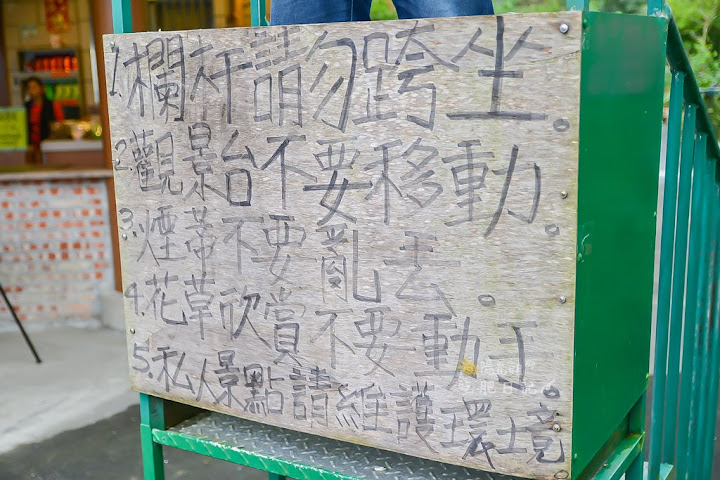 1.欄杆請勿跨坐。
2.觀景台不要移動。
3.煙蒂不要亂丟。
4.花草欣賞不要動手。
5.私人景點請維護環境。